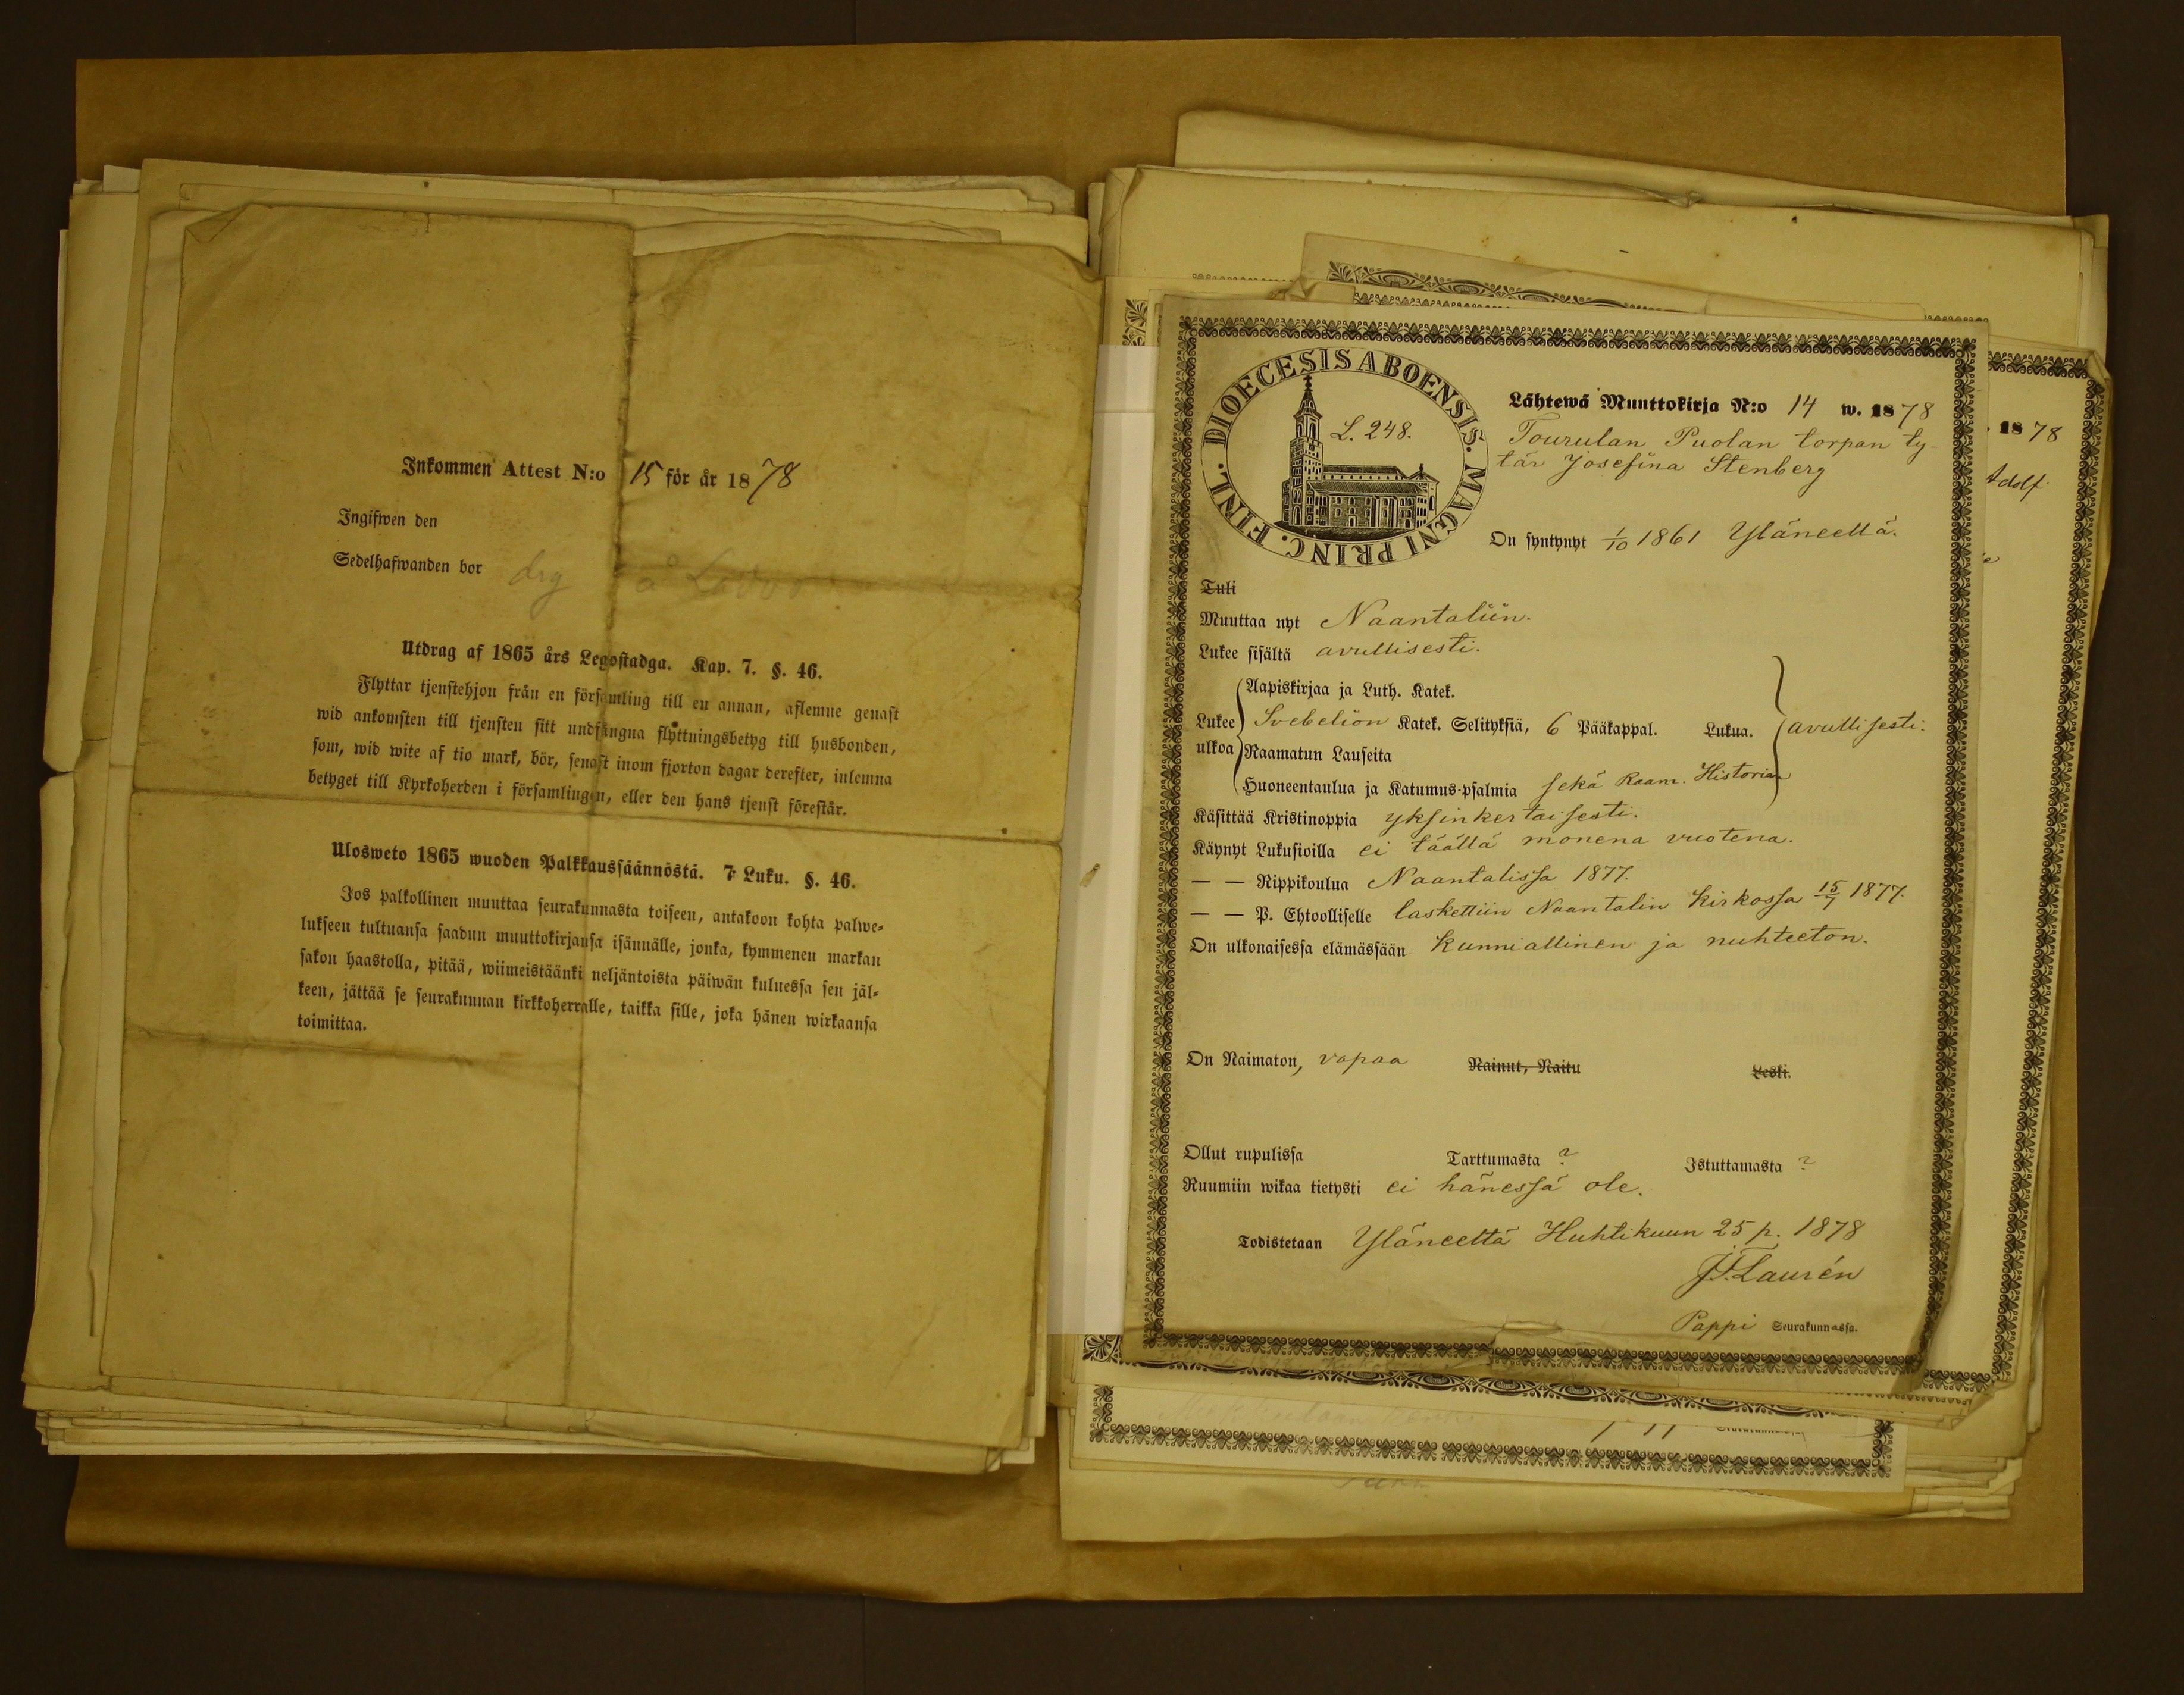 Inkommen Attest N:o 15 för år 1878
Ingifwen den
Sedelhafwanden bor drg å
Utdrag af 1865 års Legostadga. Kap. 7. §. 46.
Flyttar tjenstehjon från en församling till en annan, aflemne genast
wid ankomsten till tjensten sitt undfångna flyttningsbetyg till husbonden,
som, wid wite af tio mark, bör, senast inom fjorton dagar derefter, inlemna
betyget till Kyrkoherden i församlingen, eller den hans tjenst förestår.
Ulosweto 1865 wuoden Palkkaussäännöstä. 7 Luku. §. 46.
Jos palkollinen muuttaa seurakunnasta toiseen, antakoon kohta palwe-
lukseen tultuansa saadun muuttokirjansa isännälle, jonka, kymmenen markan
sakon haastolla, pitää, wiimeistäänki neljäntoista päiwän kuluessa sen jäl-
keen, jättää se seurakunnan kirkkoherralle, taikka sille, joka hänen wirkaansa
toimittaa.
DIOECESIS ABOENSIS. MAGNI PRINC. FINL.
L. 248.
Lähtewä Muuttokirja N:o 14 w. 1878
Tourulan Puolan torpan ty-
tär Josefina Stenberg
On syntynyt 1/10 1861 Yläneellä.
Tuli
Muuttaa nyt Naantaliin.
Lukee sisältä avullisesti.
Lukee ulkoa
Aapiskirjaa ja Luth. Katek.
Svebelion Katek. Selityksiä, 6 Pääkappal. Lukua. avullisesti.
Raamatun Lauseita
Huoneentaulua ja Katumus-psalmia sekä Raam. Historian
Käsittää Kristinoppia yksinkertaisesti.
Käynyt Lukusioilla ei täällä monena vuotena.
— — Rippikoulua Naantalissa 1877.
— — P. Ehtoolliselle laskettiin Naantalin Kirkossa 15/7 1877.
On ulkonaisessa elämässään Kunniallinen ja nuhteeton.
On Naimaton, vapaa Nainut, Naitu Leski.
Ollut rupulissa Tarttumasta ? Istuttamasta ?
Ruumiin wikaa tietysti ei hänessä ole.
Todistetaan Yläneeltä Huhtikuun 25 p. 1878
J. F. Laurén
Pappi Seurakunnassa.
1878
Adolf